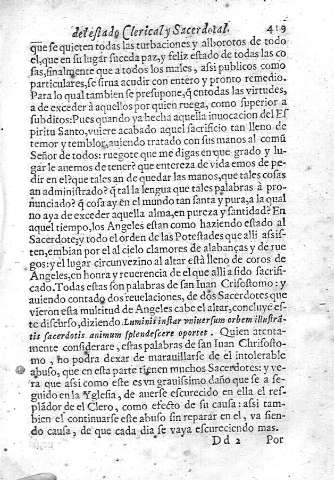 del estado Clerical y Sacerdotal. 419
que se quieten todas las turbaciones y alborotos de todo
el, que en su lugar suceda paz, y feliz estado de todas las co
sas, finalmente que a todos los males, assi publicos como
particulares, se sirua acudir con entero y pronto remedio.
Para lo qual tambien se presupone, q̃ en todas las virtudes,
a de exceder à aquellos por quien ruega, como superior a
subditos: Pues quando ya hecha aquella inuocacion del Es
piritu Santo, vuiere acabado aquel sacrificio tan lleno de
temor y temblor, auiendo tratado con sus manos al comũ
Señor de todos: ruegote que me digas en que grado y lu-
gar le anemos de tener? que entereza de vida emos de pe-
dir en el? que tales an de quedar las manos, que tales cosas
an administrado? q̃ tal la lengua que tales palabras à pro-
nunciado? q̃ cosa ay en el mundo tan santa y pura, a la qual
no aya de exceder aquella alma, en pureza y santidad? En
aquel tiempo, los Angeles estan como haziendo estado al
Sacerdote, y todo el orden de las Potestades que alli assis-
ten, embian por el al cielo clamores de alabanças, y de rue
gos: y el lugar circunvezino al altar està lleno de coros de
Angeles, en honra y reuerencia de el que alli à sido sacrifi-
cado. Todas estas son palabras de san Iuan Crisostomo: y
auiendo contado dos reuelaciones, de dos Sacerdotes que
vieron esta multitud de Angeles cabe el altar, concluye es-
te discurso, diziendo. Luminis instar vniuersum orbem illustra-
tis sacerdotis animum splendescere oportet. Quien atenta-
mente considerare, estas palabras de san Iuan Chrisosto-
mo, no podra dexar de marauillarse de el intolerable
abuso, que en esta parte tienen muchos Sacerdotes: y ve-
ra que assi como este es vn grauissimo daño que se a se-
guido en la Yglesia, de auerse escurecido en ella el res-
plãdor de el Clero, como efecto de su causa: assi tam-
bien el continuarse este abuso sin reparar en el, va sien-
do causa, de que cada dia se vaya escureciendo mas.
Dd 2 Por